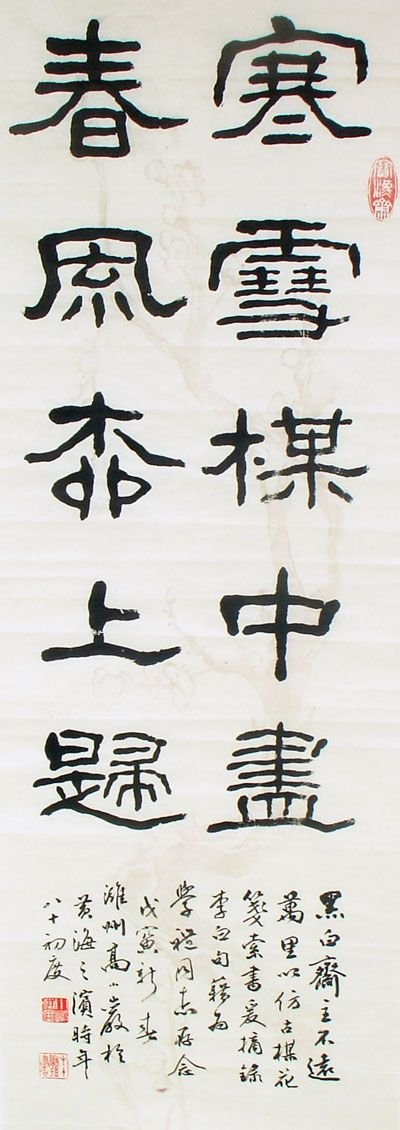 寒雪楳中盡
春風桺上歸
黑白齋主不遠
萬里以仿古楳花
箋索書爰摘錄
李白句藉為
學禮同志存念
戊寅新春
濰州高小巖於
黃海之濱時年
八十初度